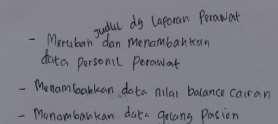 judul dg Laporan Perawat
- Merubah dan Menambahkan
data personil Perawat
- Menambahkan data nilai balance cairan
- Menambahkan data gelang Pasien